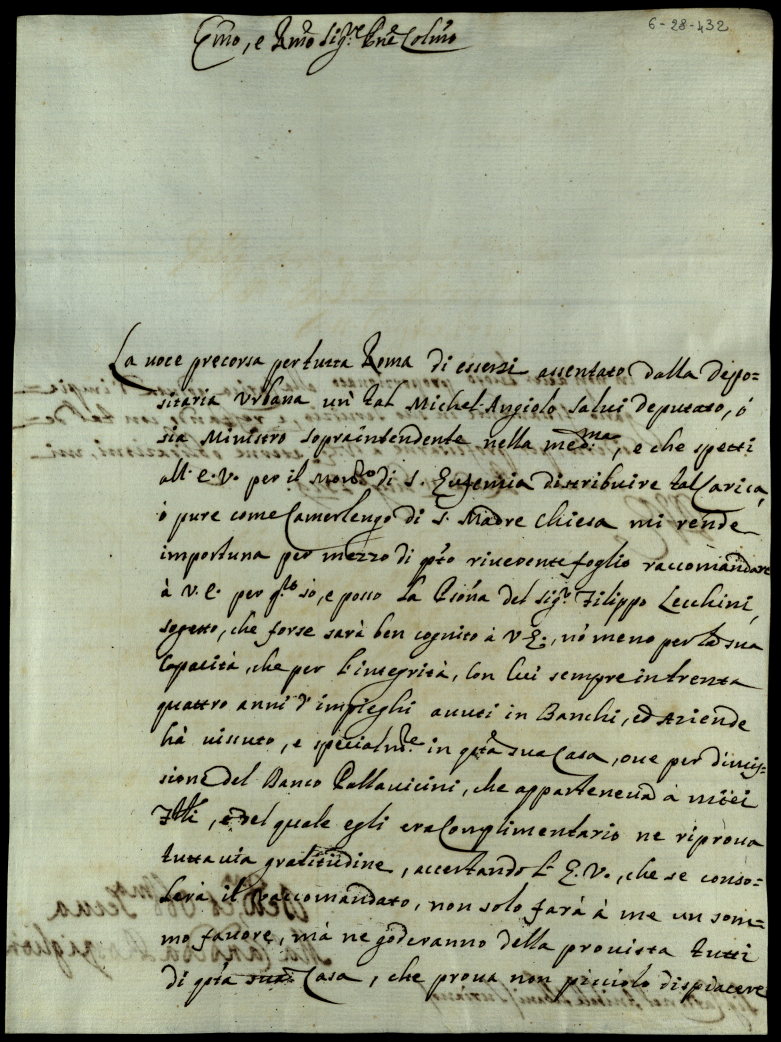 6-28-432
Emo, e Rmo Sig.re Pne Colmo
La uoce precorsa per tutta Roma di essersi assentato dalla Depo=
sitaria Urbana un tal Michel'Angiolo Salui deputato, ó
sia Ministro sopraintendente nella med.ma, e che spetti
all'E.V. per il di S. Eugenia distribuire tal Carica,
ó pure come Camerlengo di S. Madre Chiesa mi rende
importuna per mezzo di qto riuerente foglio raccomandare
à V.E. per q.to sò, e posso la Psona del Sig.r Filippo Lecchini,
sogetto, che forse sarà ben cognito à V.E., nò meno per la sua
Capacità, che per l'integrità, con cui sempre in trenta
quattro anni d'impieghi auuti in Banchi, ed Aziende
hà uissuto, e specialm.te in qsta sua Casa, oue per dimis=
sione del Banco Pallauicini, che apparteneua à miei
Flli, e del quale egli era Complimentario ne riproua
tutta uia gratitudine, accertando l'E.V., che se conso=
lerà il raccomandato, non solo farà à me un som=
mo fauore, mà ne goderanno della prouista tutti
di qsta sua Casa, che proua non picciolo dispiacere